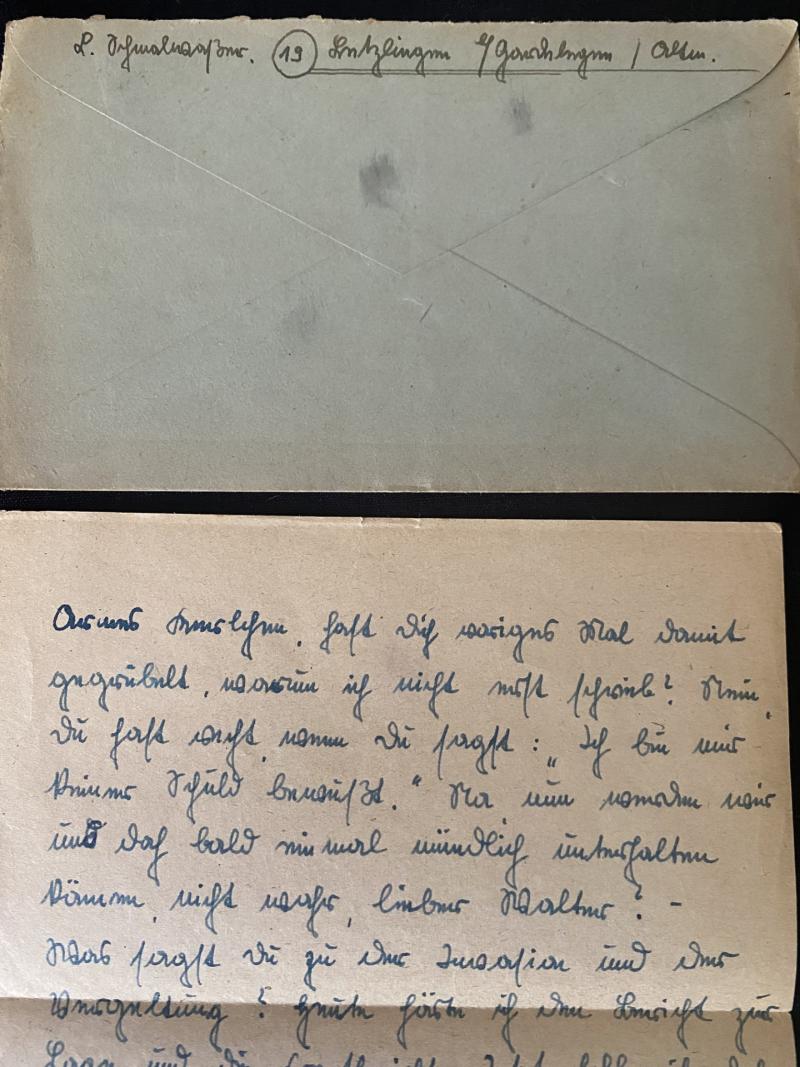 L. Schmalwaßer. 19 Letzlingen b/Gardelegen / Altm.
Armes Kerlchen, hast Dich voriges Mal damit
gegrübelt, warum ich nicht erst schrieb? Nein,
Du hast recht, wenn Du sagst: „Ich bin mir
keiner Schuld bewußt.“ Na nun werden wir
uns doch bald einmal mündlich unterhalten
können, nicht wahr, lieber Walter? -
Was sagst Du zu der Invasion und der
Vergeltung? Heute hörte ich den Bericht zur
Lage und die